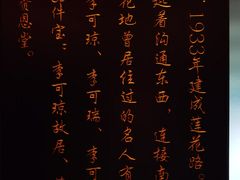 1933年建成莲花路。
起着沟通东西，连接南
花地曾居住过的名人有
李可琼、李可瑞、李可
件宝：李可琼故居、
恩堂。